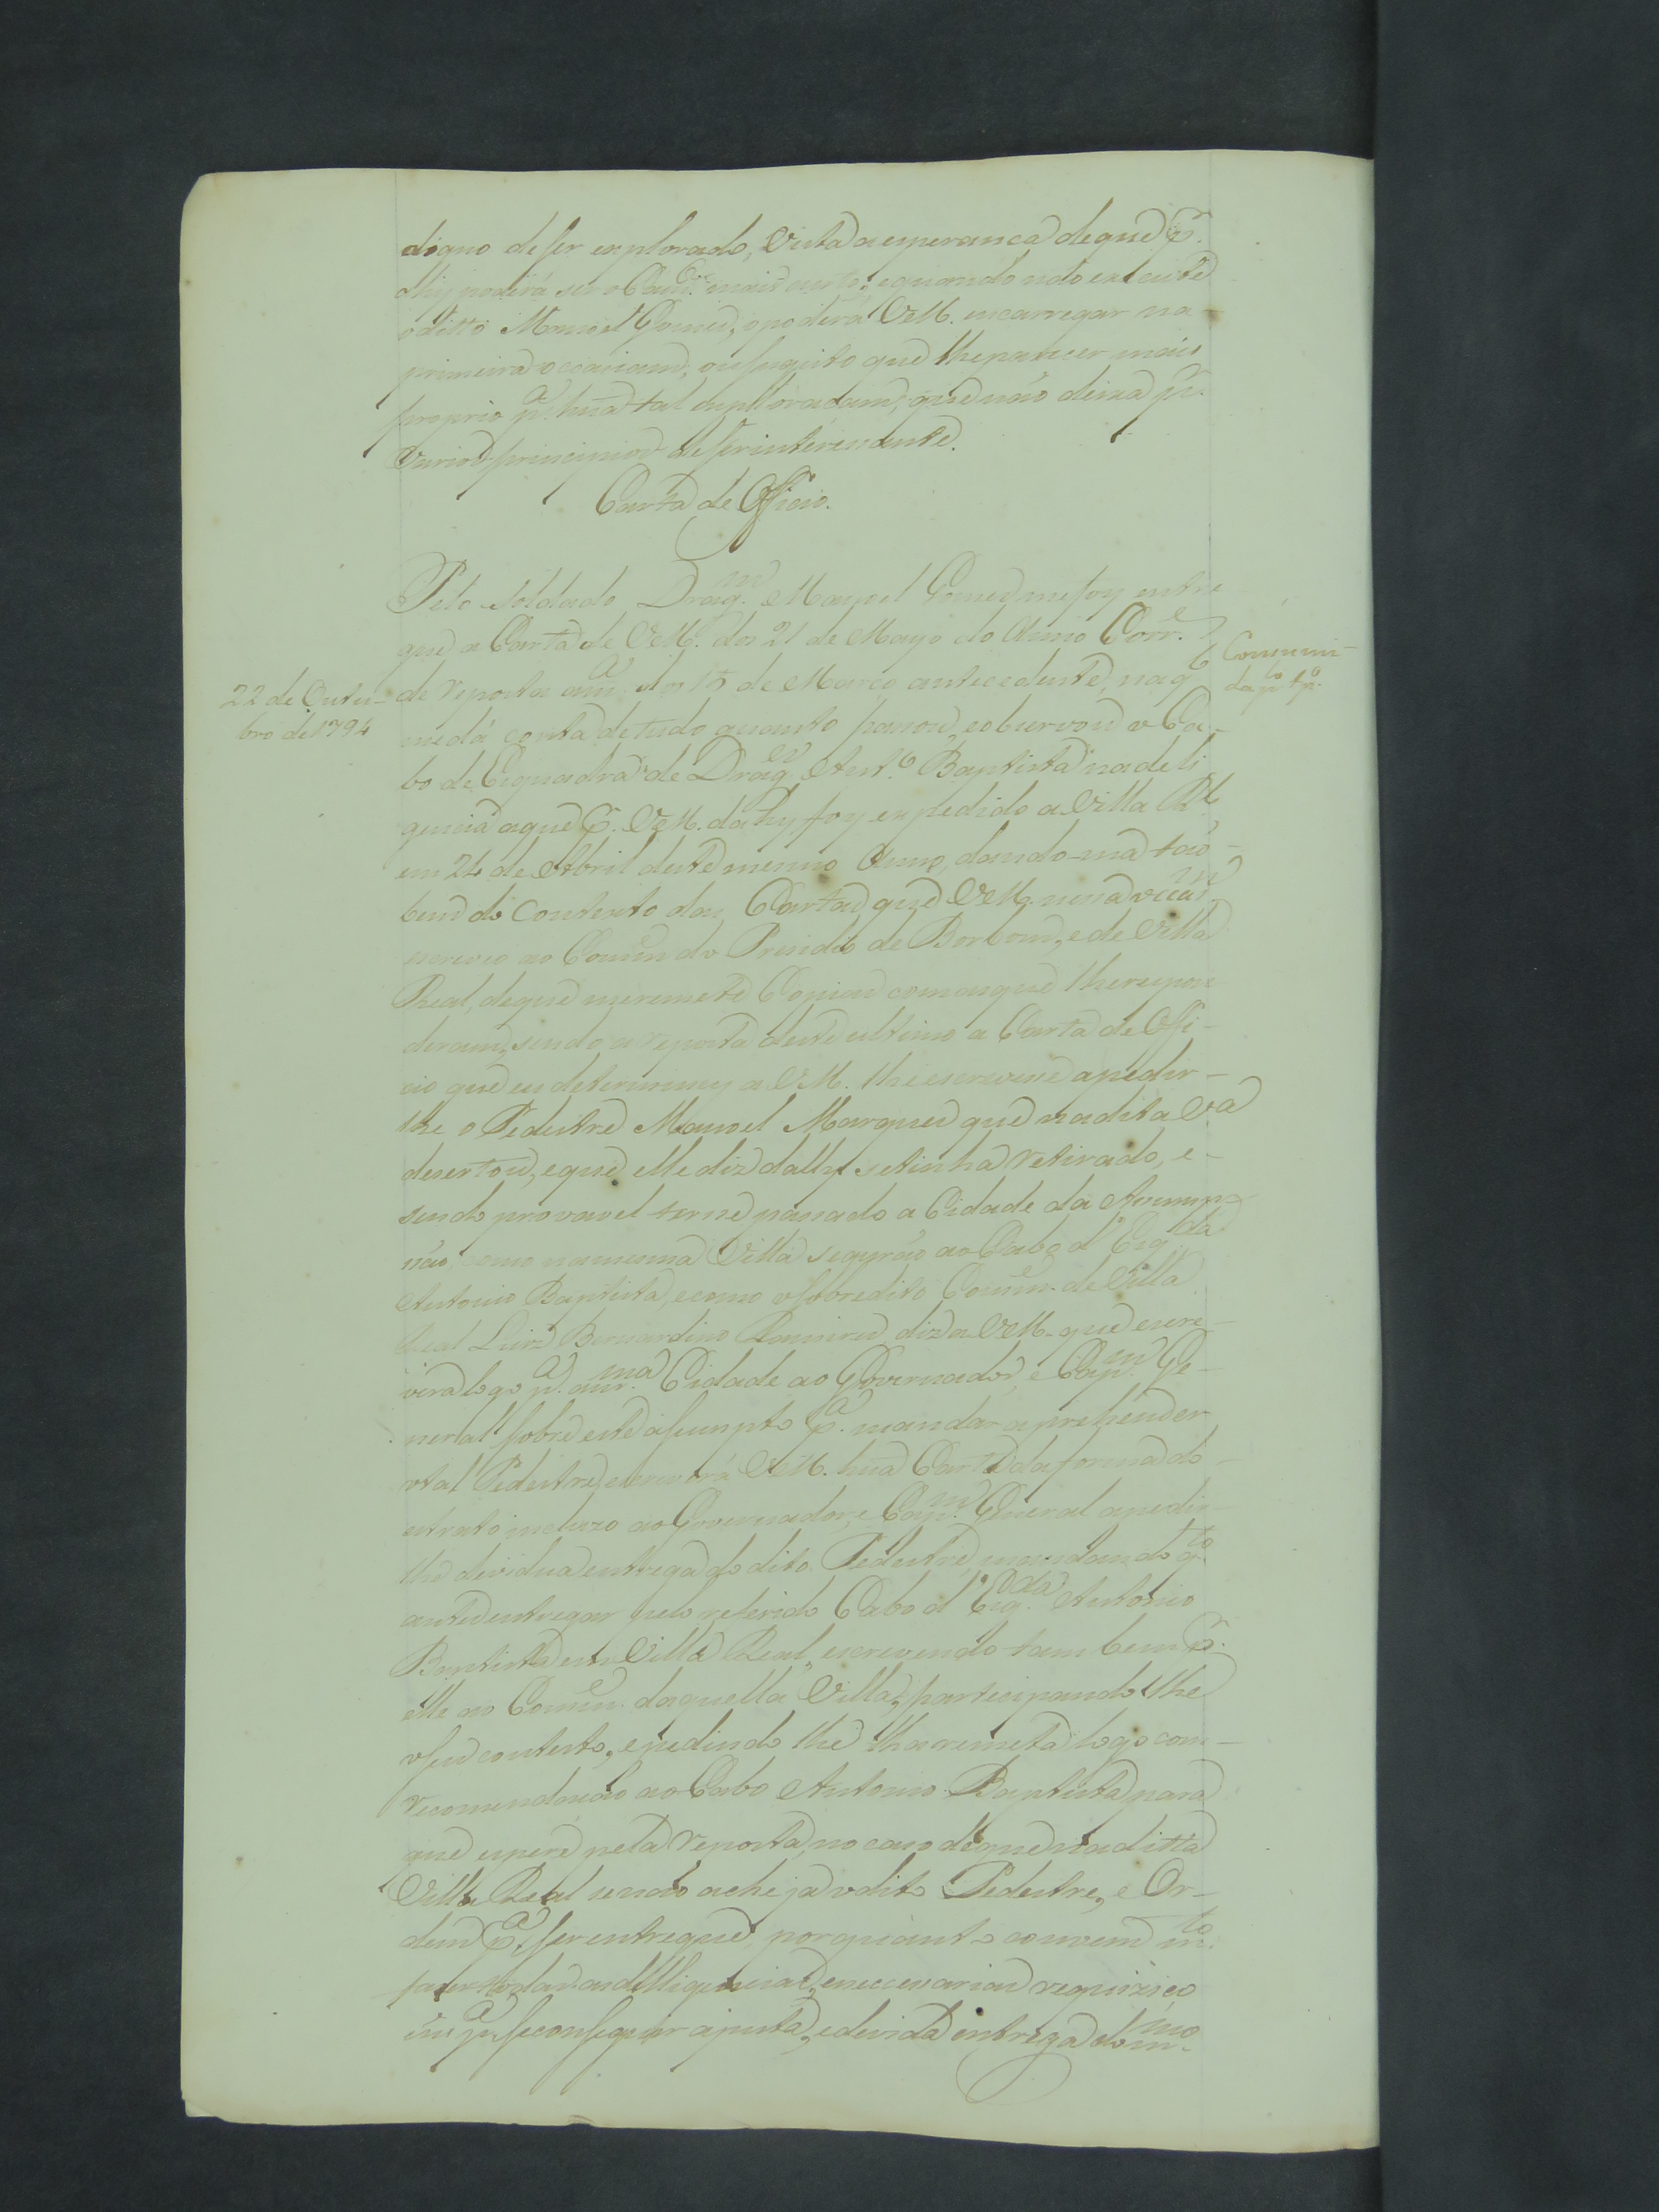 digno de ser explorado, vista a esperança de que p.ʳ
alhy poderá ser o Cam.º mais curto; e quando não exeute
o ditto Manoel Gomes, o poderá VM. encarregar na
primeira occasiam, ou sugeito que lhe parecer mais
proprio p.ª huã tal exploraçam, que não deixa p.ʳ
varios principios de ser interessante.
Carta de Officio.
Pelo soldado Drag.ᵐ Manoel Gomes me foy entre
gue a Carta de VM. dos 21 de Mayo do Anno Corr.ᵉ
22 de Outu-
bro de 1794
de reposta a m.ª dos 15 de Março antecedente, na q̃
me dá conta de tudo quanto passou, e observou o Ca-
bo de Esquadra de Drag.ᵉˢ Ant.º Baptista na deli
gencia a que p.ʳ VM. dahy foy expedido a Villa R.ˡ
em 24 de Abril deste mesmo Anno, dando-ma tão-
bem do contexto das Cartas que VM. nessa occas.ᵐ
escreveo ao Comm.ᵉ do Prezidio de Borbom, e de Villa
Real, de que me remete Copias com as que lhe respon
deram, sendo a reposta deste ultimo a Carta de Offi-
cio que eu determiney a VM. lhe escrevese a pedir-
lhe o Pedestre Manoel Marques que na dita V.ª
desertou, e que elle diz dally se tinha retirado, e-
sendo provavel terse passado a Cidade da Assump-
são, como na mesma Villa segurão ao Cabo d'Esq.ᵈᵃ
Antonio Baptista, e como o sobredito Comm.ᵉ de Villa
Real Luiz Bernardino Ramires diz a VM. que escre-
vera logo p.ª a m.ᵐᵃ Cidade ao Governador, e Cap.ᵐ Ge-
neral sobre este asumpto p.ª mandar aprehender
o tal Pedestre, escreverá VM. huã Carta da forma do
estrato incluzo ao Governador, e Cap.ᵐ General a pedir-
lhe devidua entrega do dito Pedestre, mandando q.ᵗᵒ
antes entregar pelo referido Cabo d'Esq.ᵈᵃ Antonio
Baptista em Villa Real, escrevendo tambem p.ʳ
elle ao Comm.ᵉ daquella Villa, participando lhe
o seu contexto, e pedindo lhe lha remeta logo com-
recomendação ao Cabo Antonio Baptista para
que espere pela reposta, no caso de que na ditta
Villa Real se não ache ja o dito Pedestre, e Or-
dem p.ª ser entregue, por quanto convem m.ᵗᵒ
fazer todas as delligencias, e neccesarias requiziço
ins p.ª se conseguir a justa, e devida entrega do m.ᵐᵒ